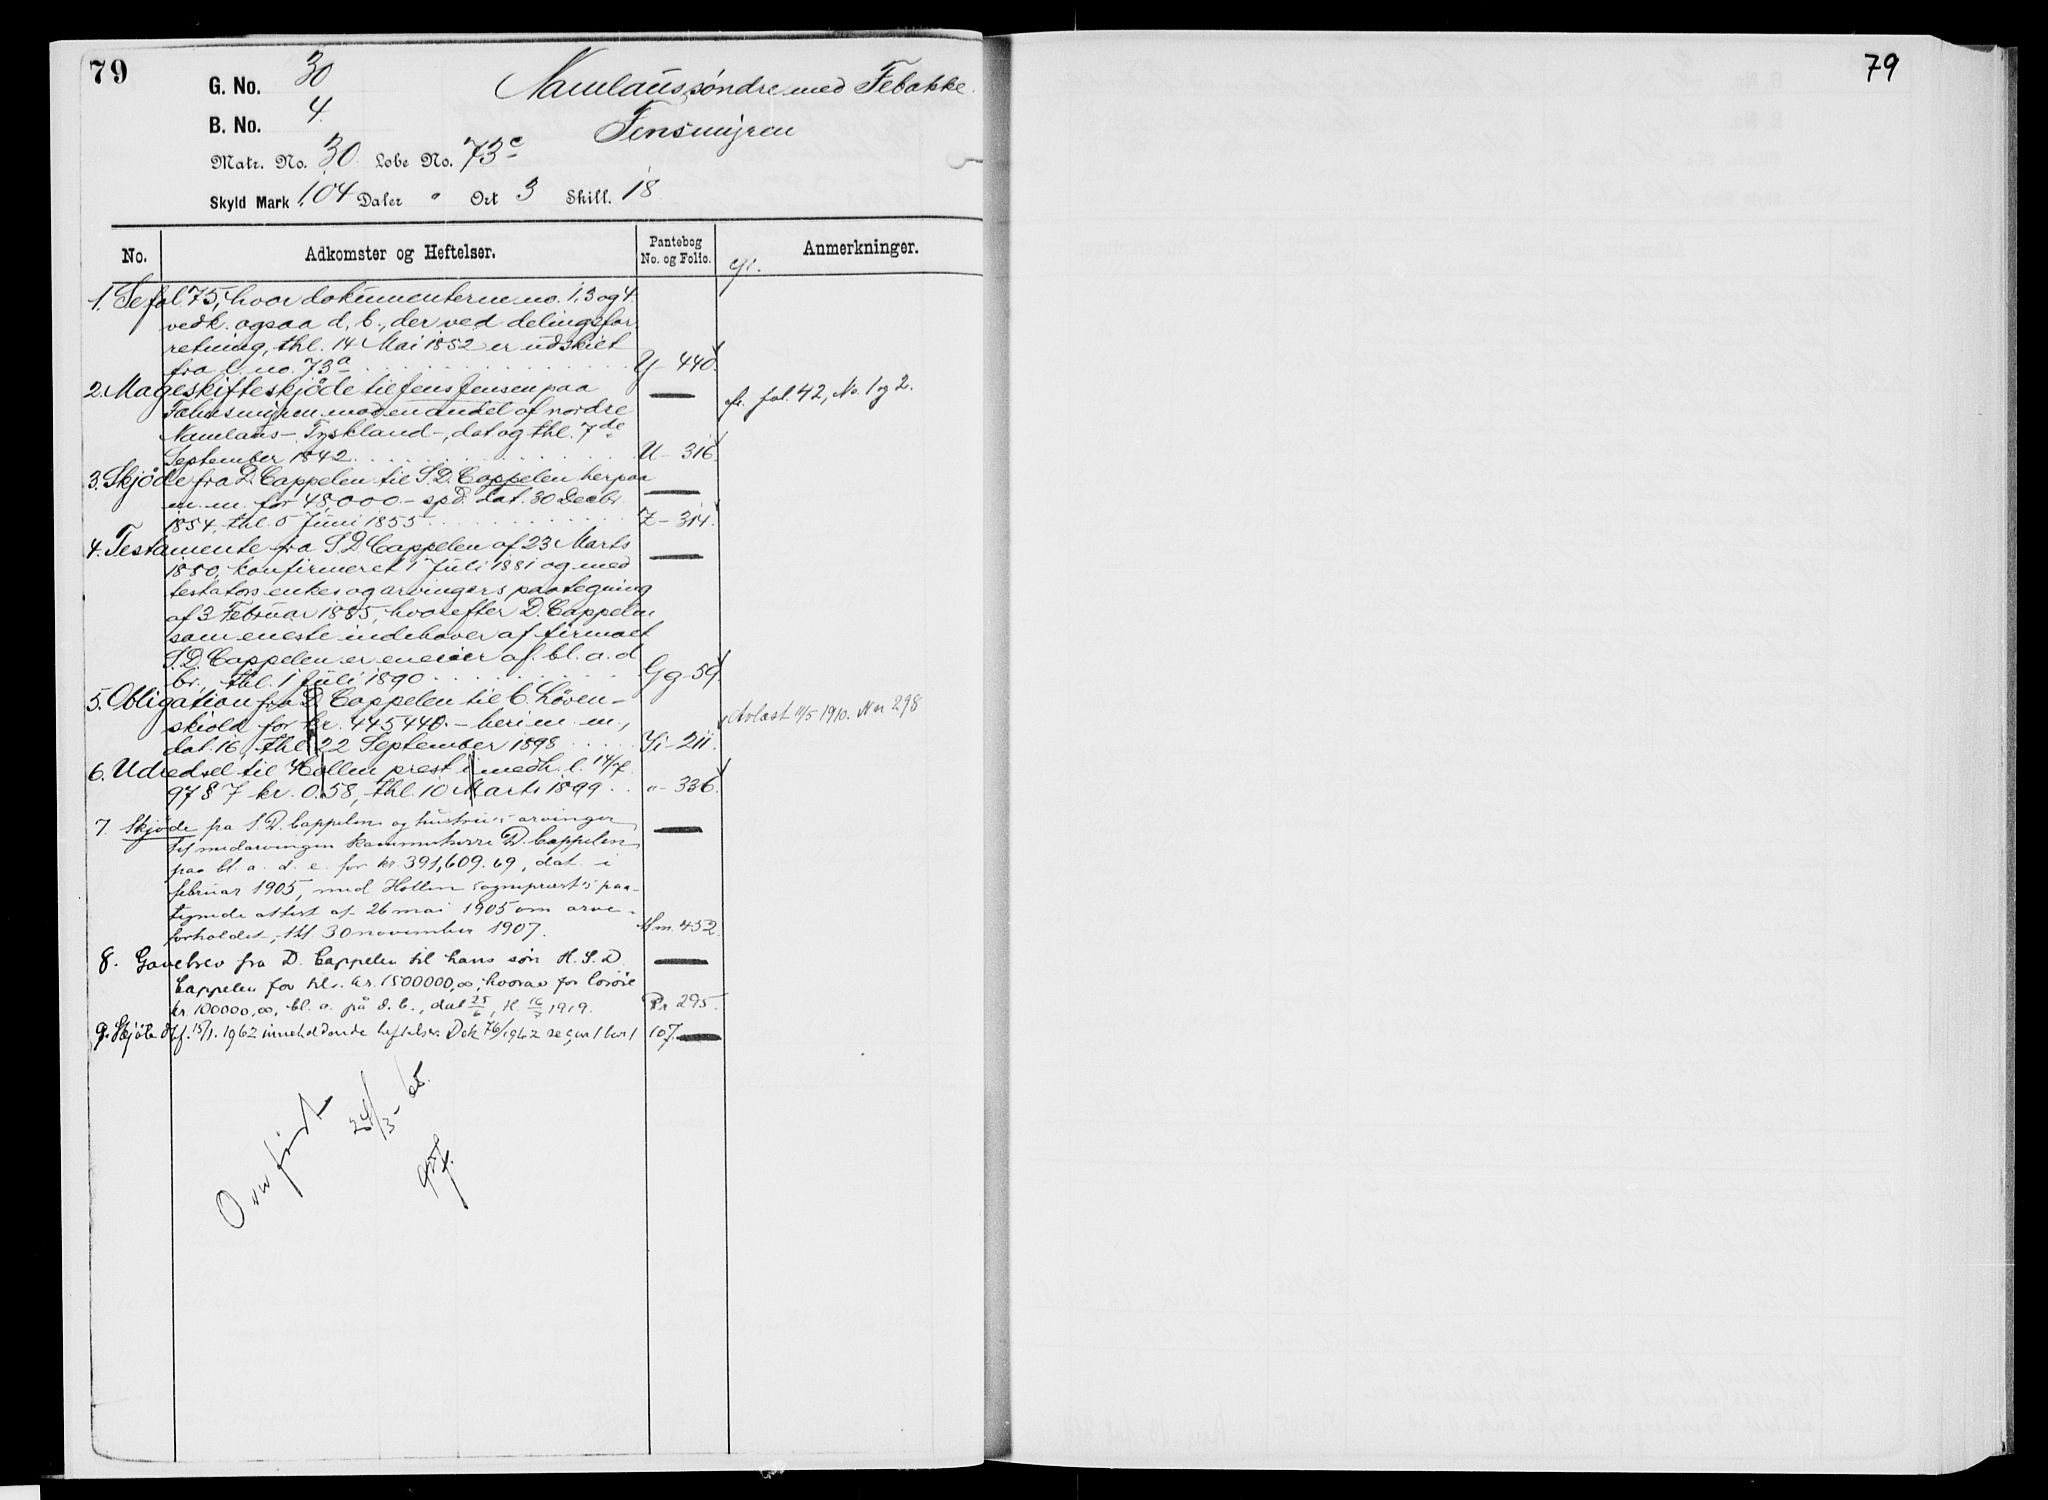 79
G. No. 30
B. No. 4
Matr. No. 30. Løbe No. 73c
Skyld Mark 1.04 Daler " Ort 3 Skill. 18
Namlaus søndre med Febakke
Fensmyren
No. Adkomster og Heftelser. Pantebog No. og Folio. Anmerkninger.
1. Se fol 75, hvor dokumenterne no. 1, 3 og 4
vedk. ogsaa d. b., der ved delingsfor-
retning, thl. 14 Mai 1852 er udskilt
fra l. no. 73a Y - 440.
2. Mageskifteskjøde til Jens Jensen paa
Fahnsmyren mod en andel af nordre cfr. fol. 42, No. 1 og 2.
Namlaus - Tyskland -, dat. og thl. 7de
September 1842 U - 316.
3. Skjøde fra D. Cappelen til S. D. Cappelen herpaa
m. m. for 48,000 - spd. dat. 30 Decbr.
1854, thl. 5 Juni 1855 Z - 314.
4. Testamente fra S. D. Cappelen af 23 Marts
1880, konfirmeret 1 Juli 1881 og med
testators enkes og arvingers paategning
af 3 Februar 1885, hvorefter D. Cappelen
som eneste indehaver af firmaet
S. D. Cappelen er eneeier af bl. a. d
br., thl. 1 Juli 1890 Gg - 59.
5. Obligation fra D. Cappelen til C. Løven-
skiold for kr. 445440. - heri m. m., Avlæst 11/5 1910. Nr 298
dat. 16, thl. 22 September 1898 Ii - 211.
6. Udredsel til Hollen prest i medh. l. 14/7
97 § 7 kr. 0.58, thl. 10 Marts 1899 " - 336.
7. Skjøde fra S. D. Cappelen og hustrus arvinger
til medarvingen kammerherre D. Cappelen
paa bl. a. d. e. for kr. 391,609.69, dat. i
februar 1905, med Hollen sogneprest's paa-
tegnede attest af 26 mai 1905 om arve-
forholdet, thl. 30 november 1907. Mm. 452.
8. Gavebrev fra D. Cappelen til hans søn H. S. D.
Cappelen for tils. kr. 1500000,00, hvorav for løsøre
kr. 100000,00, bl. a. på d. b., dat 25/6, tl. 16/7 1919. Pr 295.
9. Skjøte dgf. 15/1. 1962 inneholdende heftelser. Dok 76/1962 se gnr 1 bnr 1 107.
Overført 24/3-65.
79